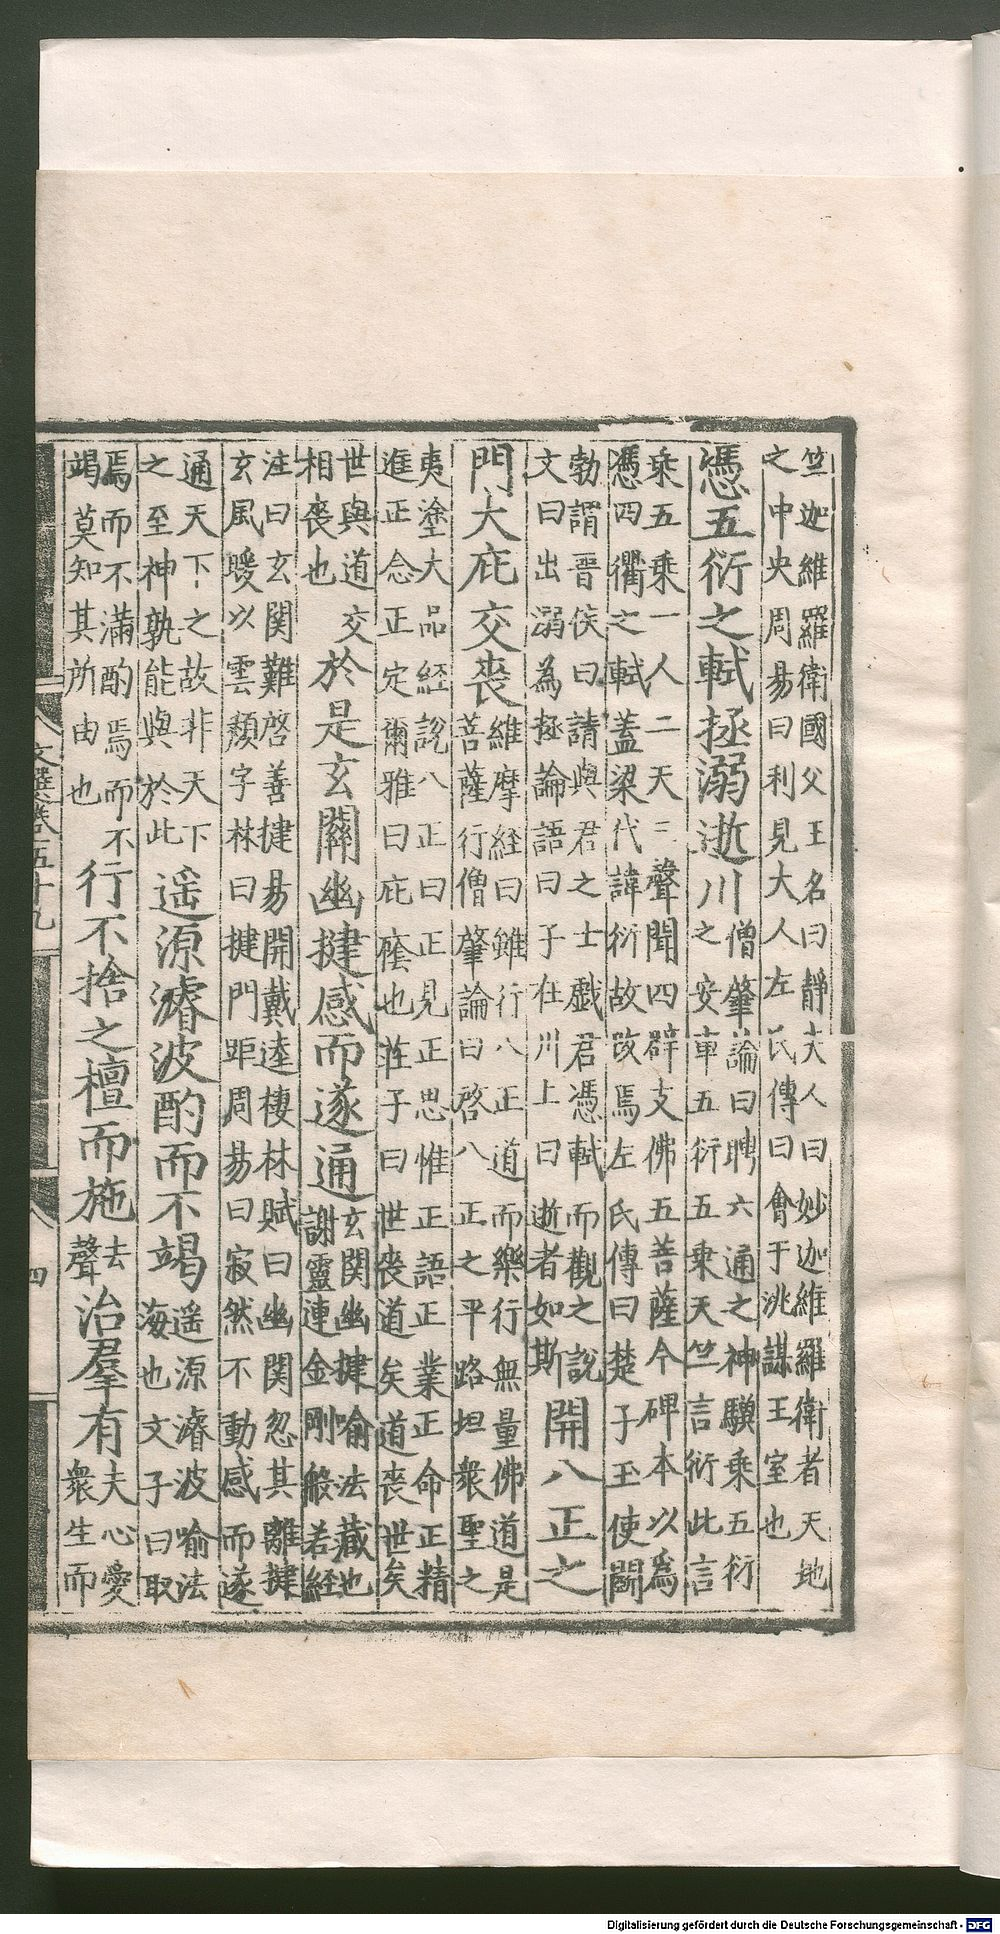 竺迦維羅衛國父王名曰靜夫人曰妙迦維羅衛者天地
之中央周易曰利見大人左氏傳曰會于洮謀王室也
憑五衍之軾拯溺逝川
僧肇論曰聘六通之神驥乘五衍
之安車五衍五乗天竺言衍此言
乘五乗一人二天三聲聞四辟支佛五菩薩今碑本以為
憑四衢之軾蓋梁代諱衍故改焉左氏傳曰楚子玉使鬭
勃謂晉侯曰請與君之士戲君憑軾而觀之說
文曰出溺為拯論語曰子在川上曰逝者如斯
開八正之
門大庇交喪
維摩経曰雖行八正道而樂行無量佛道是
菩薩行僧肇論曰啓八正之平路坦衆聖之
夷塗大品経說八正曰正見正思惟正語正業正命正精
進正念正定爾雅曰庇䕃也莊子曰世喪道矣道喪世矣
世與道交
相喪也
於是玄關幽揵感而遂通
玄関幽揵喻法藏也
謝靈連金剛般若経
注曰玄関難啓善揵易開戴逵棲林賦曰幽関忽其離揵
玄風暖以雲頹字林曰揵門距周易曰寂然不動感而遂
通天下之故非天下
之至神孰能與於此
遥源濬波酌而不竭
遥源濬波喻法
海也文子曰取
焉而不滿酌焉而不
竭莫知其所由也
行不捨之檀而施
去
聲
洽羣有
夫心愛
衆生而
文選卷五十九
四
Digitalisierung gefördert durch die Deutsche Forschungsgemeinschaft - DFG